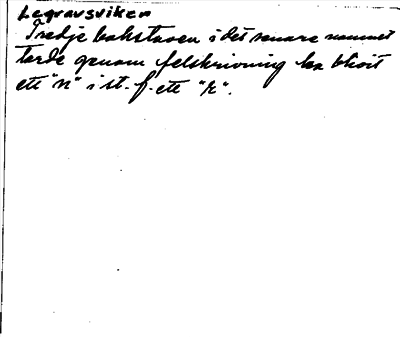 Legravsviken
Tredje bokstaven i det senare namnet
torde genom felskrivning ha blivit
ett "n" i st. f. ett "k".